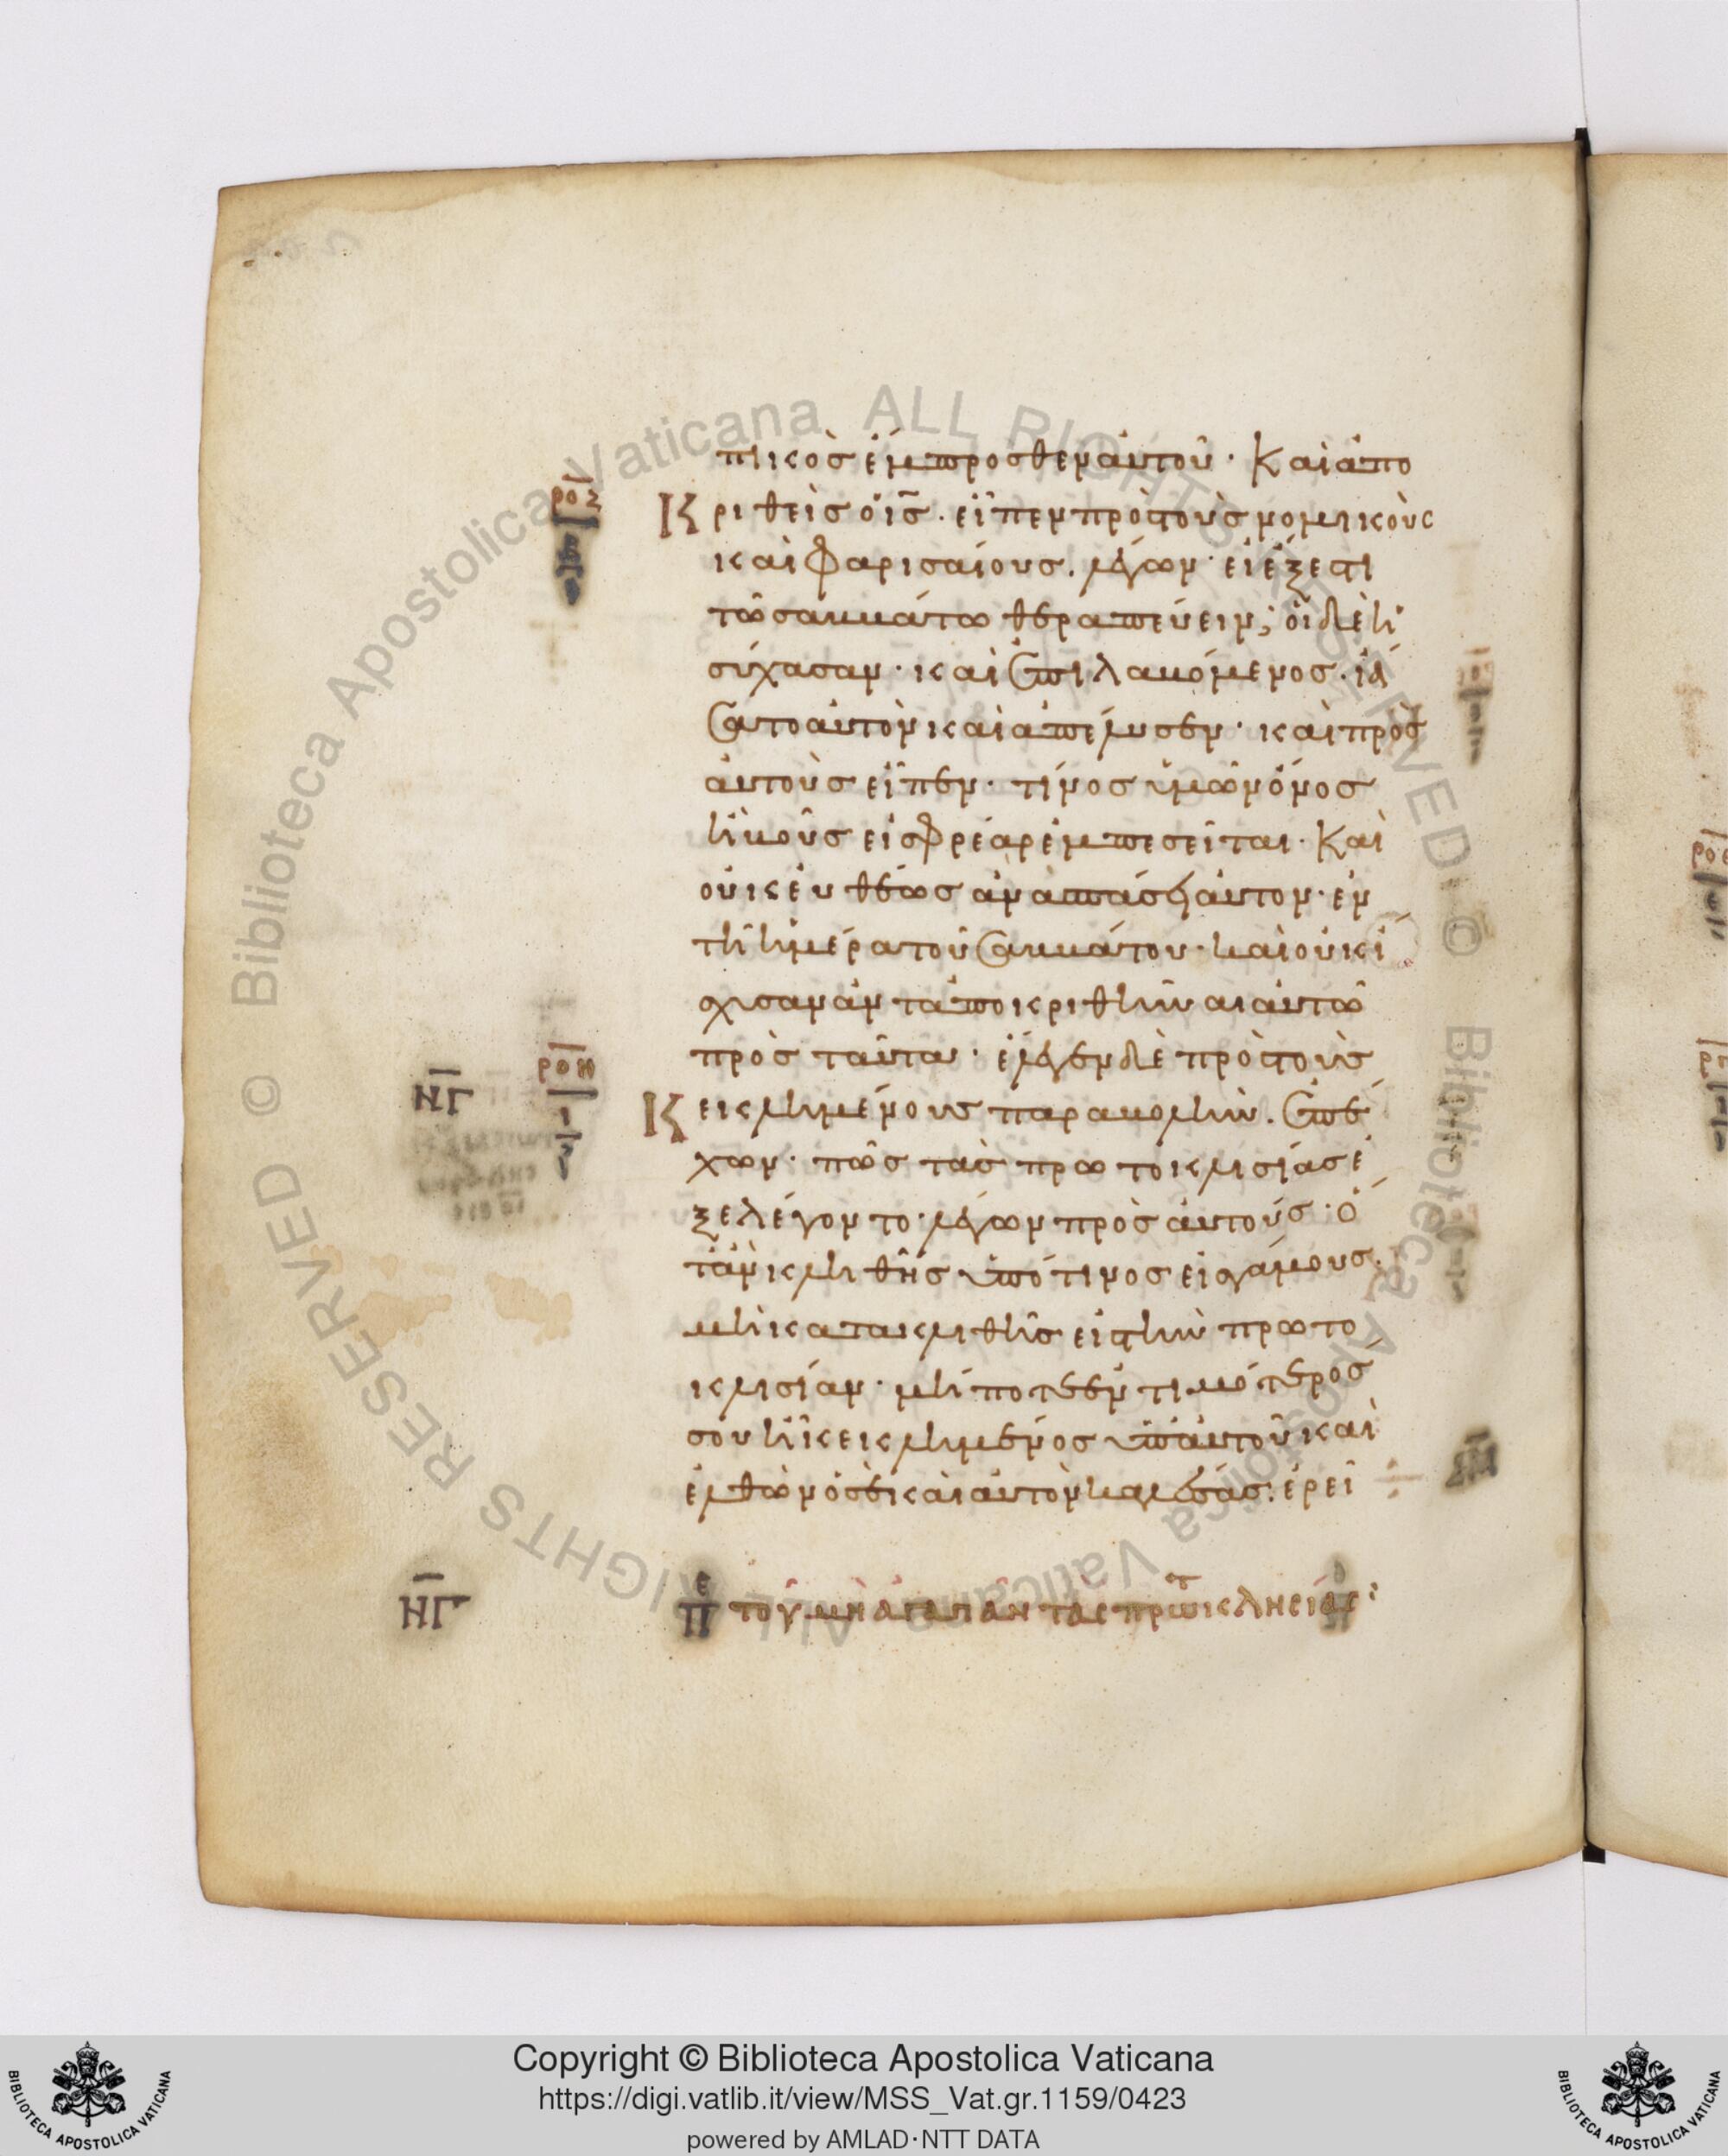 πικὸς ἔμπροσθεν αὐτοῦ· Καὶ ἀπο
ροζ
Κριθεὶς ὁ ις̅. εἶπεν πρὸς τοὺς νομικοὺς
καὶ Φαρισαίους. λέγων· εἰ ἔξεστι
τῶ σαββάτω θεραπεύειν; οἱ δὲ ἡ
σύχασαν· καὶ ἐπιλαβόμενος· ἰά
σατο αὐτὸν καὶ ἀπέλυσεν· καὶ πρὸς
αὐτοὺς εἶπεν· τίνος ὑμῶν ὄνος
ἢ βοῦς εἰς φρέαρ ἐμπεσεῖται· Καὶ
οὐκ εὐθέως ἀνασπάσῃ αὐτον· ἐν
τῆ ἡμέρα τοῦ σαββάτου· καὶ οὐκ ἴ
σχυσαν ἀνταποκριθῆναι αὐτῶ
πρὸς ταῦτα· ἔλεγεν δὲ πρὸς τοὺς
ΝΓ̅ ροη
Κεκλημένους παραβολὴν. ἐπέ
χων· πῶς τὰς πρωτοκλισίας ἐ
ξελέγοντο· λέγων πρὸς αὐτούς· ὅ
τὰν κληθῆς ὑπό τινος εἰς γάμους.
μὴ κατακλιθῆς εἰς τὴν πρωτο
κλισίαν· μήποτε ἐντιμότερός
σου ἦ κεκλημένος ὑπ' αὐτοῦ καὶ
ἐλθὼν ὁ σὲ καὶ αὐτὸν καλέσας. ἐρεῖ
ΝΓ̅ πε τοῦ μὴ ἀγαπᾶν τὰς πρωτκλησίας:
Copyright © Biblioteca Apostolica Vaticana
https://digi.vatlib.it/view/MSS_Vat.gr.1159/0423
powered by AMLAD·NTT DATA
BIBLIOTECA APOSTOLICA VATICANA
BIBLIOTECA APOSTOLICA VATICANA
© Biblioteca Apostolica Vaticana ALL RIGHTS RESERVED
© Biblioteca Apostolica Vaticana ALL RIGHTS RESERVED